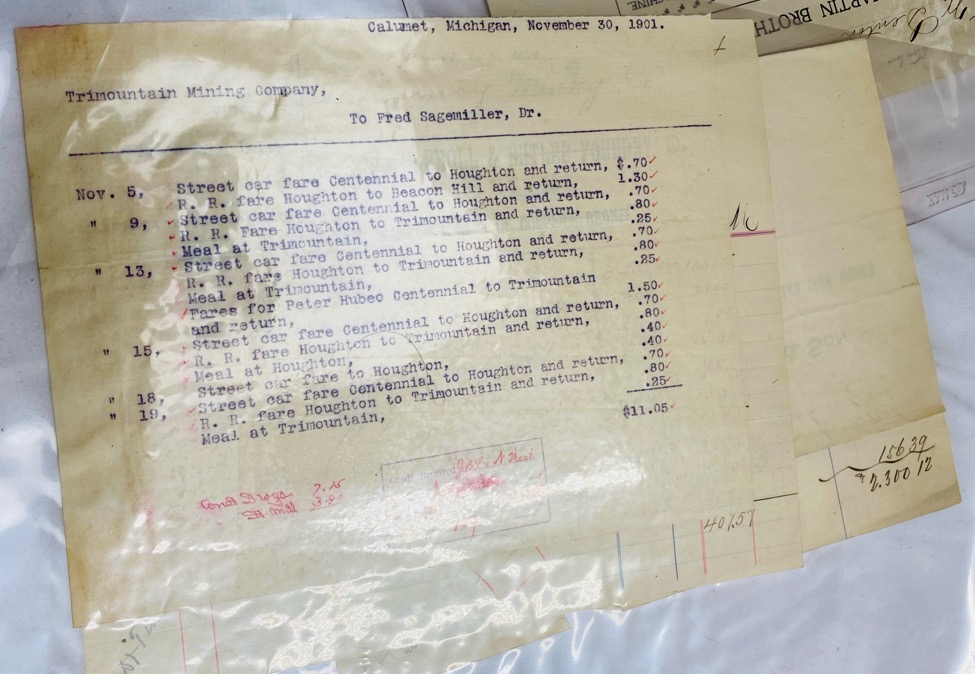 Calumet, Michigan, November 30, 1901.
Trimountain Mining Company,
To Fred Sagemiller, Dr.
Nov. 5, Street car fare Centennial to Houghton and return, $.70
R. R. fare Houghton to Beacon Hill and return, 1.30
" 9, Street car fare Centennial to Houghton and return, .70
R. R. Fare Houghton to Trimountain and return, .80
Meal at Trimountain, .25
" 13, Street car fare Centennial to Houghton and return, .70
R. R. fare Houghton to Trimountain and return, .80
Meal at Trimountain, .25
Fares for Peter Hubeo Centennial to Trimountain
and return, 1.50
" 15, Street car fare Centennial to Houghton and return, .70
R. R. fare Houghton to Trimountain and return, .80
Meal at Houghton, .40
" 18, Street car fare to Houghton, .40
" 19, Street car fare Centennial to Houghton and return, .70
R. R. fare Houghton to Trimountain and return, .80
Meal at Trimountain, .25
$11.05
Const Dwgs 7.15
" St. Mill 3.90
MARTIN BROTH
156 39
$2,300 12
407.57